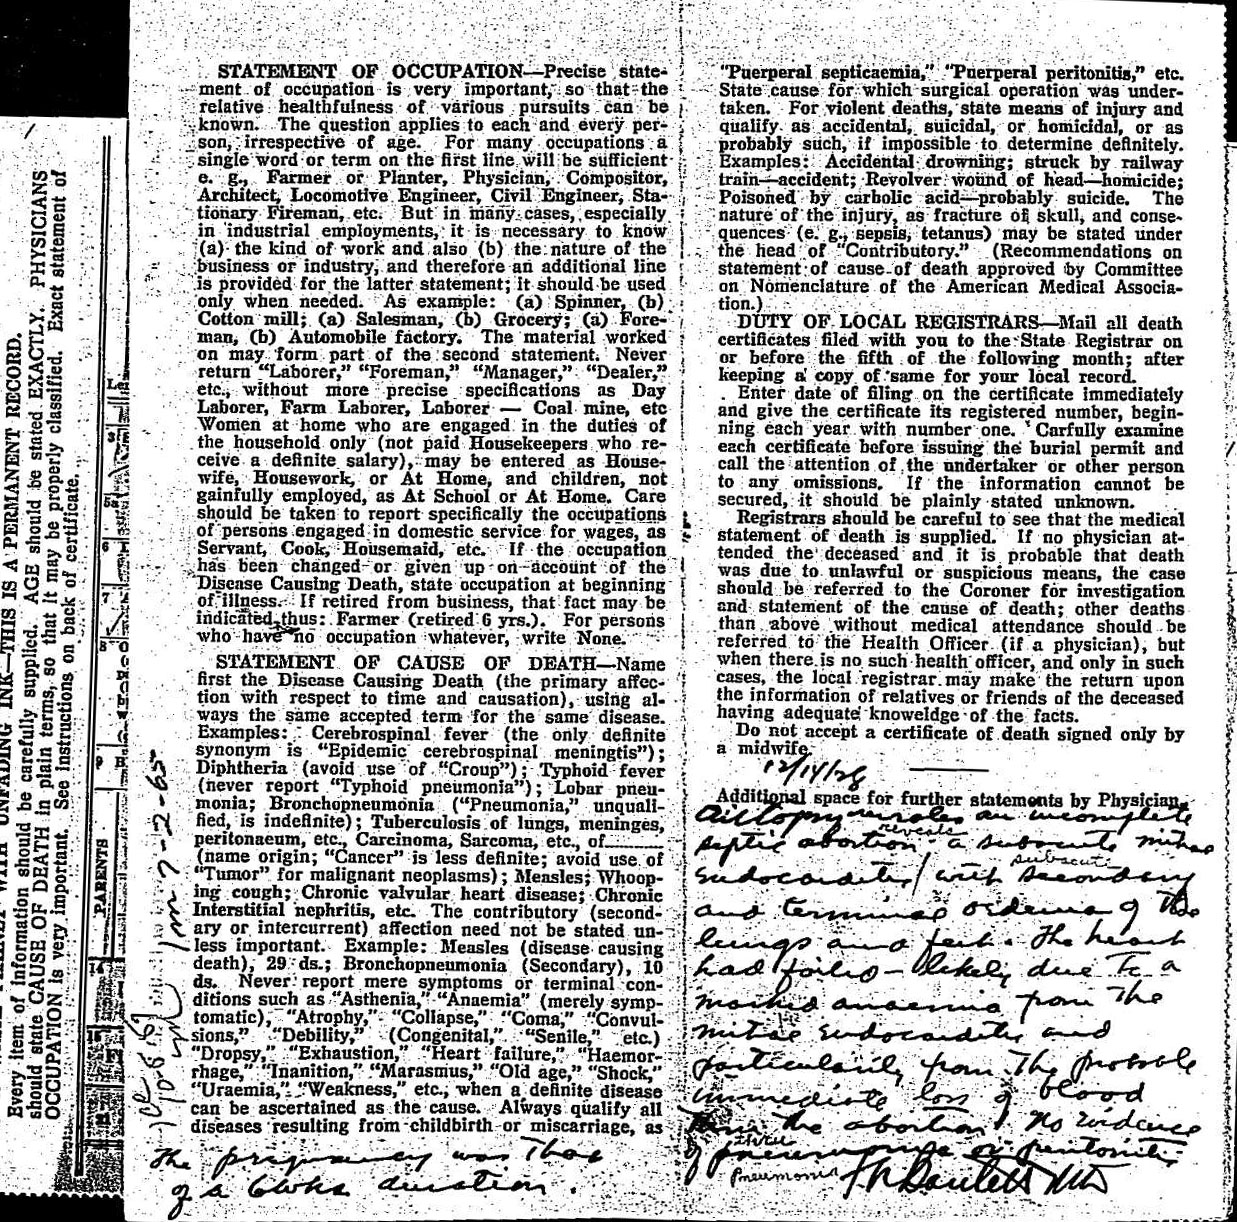 STATEMENT OF OCCUPATION—Precise state-
ment of occupation is very important, so that the
relative healthfulness of various pursuits can be
known. The question applies to each and every per-
son, irrespective of age. For many occupations a
single word or term on the first line will be sufficient
e. g., Farmer or Planter, Physician, Compositor,
Architect, Locomotive Engineer, Civil Engineer, Sta-
tionary Fireman, etc. But in many cases, especially
in industrial employments, it is necessary to know
(a) the kind of work and also (b) the nature of the
business or industry, and therefore an additional line
is provided for the latter statement; it should be used
only when needed. As example: (a) Spinner, (b)
Cotton mill; (a) Salesman, (b) Grocery; (a) Fore-
man, (b) Automobile factory. The material worked
on may form part of the second statement. Never
return "Laborer," "Foreman," "Manager," "Dealer,"
etc., without more precise specifications as Day
Laborer, Farm Laborer, Laborer — Coal mine, etc
Women at home who are engaged in the duties of
the household only (not paid Housekeepers who re-
ceive a definite salary), may be entered as House-
wife, Housework, or At Home, and children, not
gainfully employed, as At School or At Home. Care
should be taken to report specifically the occupations
of persons engaged in domestic service for wages, as
Servant, Cook, Housemaid, etc. If the occupation
has been changed or given up on account of the
Disease Causing Death, state occupation at beginning
of illness. If retired from business, that fact may be
indicated thus: Farmer (retired 6 yrs.). For persons
who have no occupation whatever, write None.
STATEMENT OF CAUSE OF DEATH—Name
first the Disease Causing Death (the primary affec-
tion with respect to time and causation), using al-
ways the same accepted term for the same disease.
Examples: Cerebrospinal fever (the only definite
synonym is "Epidemic cerebrospinal meningtis");
Diphtheria (avoid use of "Croup"); Typhoid fever
(never report "Typhoid pneumonia"); Lobar pneu-
monia; Bronchopneumonia ("Pneumonia," unquali-
fied, is indefinite); Tuberculosis of lungs, meninges,
peritonaeum, etc., Carcinoma, Sarcoma, etc., of
(name origin; "Cancer" is less definite; avoid use of
"Tumor" for malignant neoplasms); Measles; Whoop-
ing cough; Chronic valvular heart disease; Chronic
Interstitial nephritis, etc. The contributory (second-
ary or intercurrent) affection need not be stated un-
less important. Example: Measles (disease causing
death), 29 ds.; Bronchopneumonia (Secondary), 10
ds. Never report mere symptoms or terminal con-
ditions such as "Asthenia," "Anaemia" (merely symp-
tomatic), "Atrophy," "Collapse," "Coma," "Convul-
sions," "Debility," (Congenital," "Senile," etc.)
"Dropsy," "Exhaustion," "Heart failure," "Haemor-
rhage," "Inanition," "Marasmus," "Old age," "Shock,"
"Uraemia," "Weakness," etc., when a definite disease
can be ascertained as the cause. Always qualify all
diseases resulting from childbirth or miscarriage, as
The pregnancy was thos
of a 6 wks duration.
"Puerperal septicaemia," "Puerperal peritonitis," etc.
State cause for which surgical operation was under-
taken. For violent deaths, state means of injury and
qualify as accidental, suicidal, or homicidal, or as
probably such, if impossible to determine definitely.
Examples: Accidental drowning; struck by railway
train—accident; Revolver wound of head—homicide;
Poisoned by carbolic acid—probably suicide. The
nature of the injury, as fracture of skull, and conse-
quences (e. g., sepsis, tetanus) may be stated under
the head of "Contributory." (Recommendations on
statement of cause of death approved by Committee
on Nomenclature of the American Medical Associa-
tion.)
DUTY OF LOCAL REGISTRARS—Mail all death
certificates filed with you to the State Registrar on
or before the fifth of the following month; after
keeping a copy of same for your local record.
Enter date of filing on the certificate immediately
and give the certificate its registered number, begin-
ning each year with number one. Carfully examine
each certificate before issuing the burial permit and
call the attention of the undertaker or other person
to any omissions. If the information cannot be
secured, it should be plainly stated unknown.
Registrars should be careful to see that the medical
statement of death is supplied. If no physician at-
tended the deceased and it is probable that death
was due to unlawful or suspicious means, the case
should be referred to the Coroner for investigation
and statement of the cause of death; other deaths
than above without medical attendance should be
referred to the Health Officer (if a physician), but
when there is no such health officer, and only in such
cases, the local registrar may make the return upon
the information of relatives or friends of the deceased
having adequate knoweldge of the facts.
Do not accept a certificate of death signed only by
a midwife.
12/14/28
Additional space for further statements by Physician
Autopsy reveals an incomplete
reveals
septic abortion - a subacute mitral
subacute
endocarditis / with secondary
and terminal oedema of the
lungs and feet. The heart
had failed - likely due to a
marked anaemia from the
mitral endocarditis and
particularily from the probable
immediate loss of blood
from the abortion. No evidence
of pneumonia or peritonitis
pneumonia
Bartlett MD
Every item of information should be carefully supplied. AGE should be stated EXACTLY. PHYSICIANS
should state CAUSE OF DEATH in plain terms, so that it may be properly classified. Exact statement of
OCCUPATION is very important. See instructions on back of certificate.
INK—THIS IS A PERMANENT RECORD.
PARENTS
7-2-65